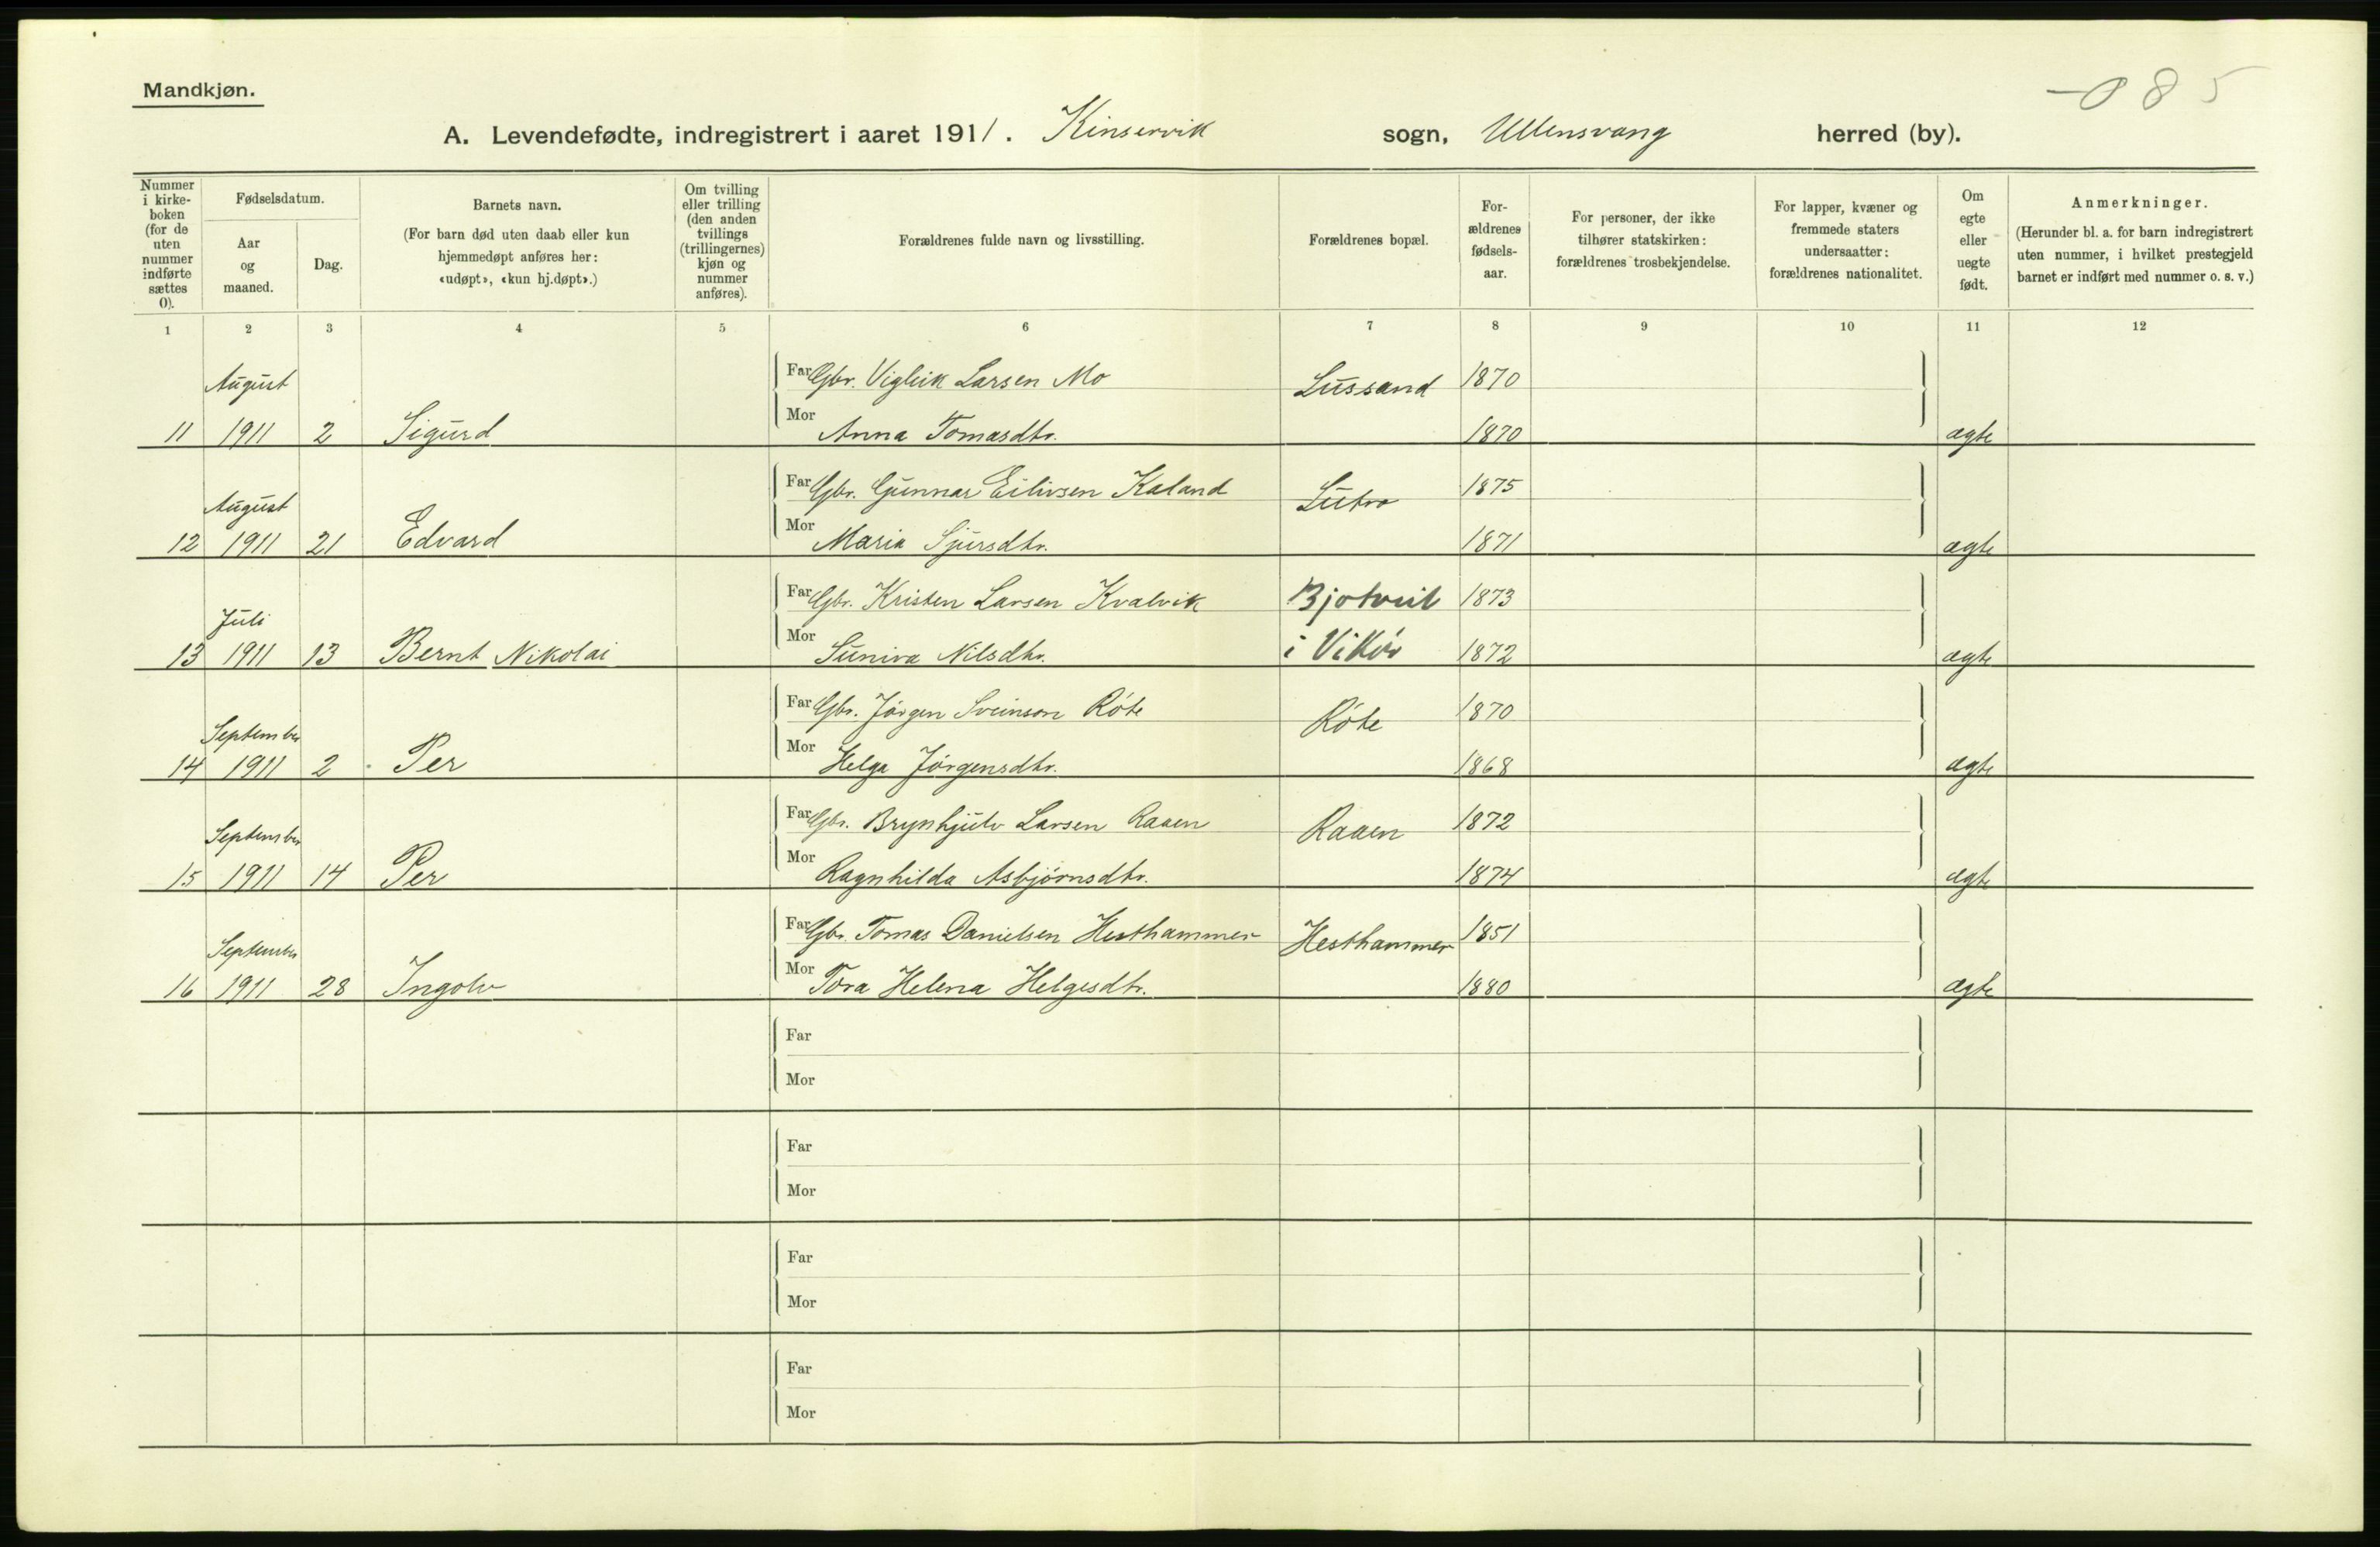 Mandkjøn.
085
A. Levendefødte, indregistrert i aaret 1911. Kinservik sogn, Ullensvang herred (by).
Nummer i kirke-boken (for de uten nummer indførte sættes 0).
Fødselsdatum.
Aar og maaned.
Dag.
Barnets navn.
(For barn død uten daab eller kun hjemmedøpt anføres her: «udøpt», «kun hj.døpt».)
Om tvilling eller trilling (den anden tvillings (trillingernes) kjøn og nummer anføres).
Forældrenes fulde navn og livsstilling.
Forældrenes bopæl.
For-ældrenes fødsels-aar.
For personer, der ikke tilhører statskirken: forældrenes trosbekjendelse.
For lapper, kvæner og fremmede staters undersaatter: forældrenes nationalitet.
Om egte eller uegte født.
Anmerkninger.
(Herunder bl. a. for barn indregistrert uten nummer, i hvilket prestegjeld barnet er indført med nummer o. s. v.)
1 2 3 4 5 6 7 8 9 10 11 12
August Far Gbr. Vigleik Larsen Mo Lussand 1870
11 1911 2 Sigurd Mor Anna Tomasdtr. 1870 ægte
August Far Gbr. Gunnar Eilivsen Kaland Lutro 1875
12 1911 21 Edvard Mor Maria Sjursdtr. 1871 ægte
Juli Far Gbr. Kristen Larsen Kvalvik Bjotveit 1873
13 1911 13 Bernt Nikolai Mor Suniva Nilsdtr. i Vikör 1872 ægte
September Far Gbr. Jörgen Sveinson Röte Röte 1870
14 1911 2 Per Mor Helga Jörgensdtr. 1868 ægte
September Far Gbr. Brynhjulv Larsen Raaen Raaen 1872
15 1911 14 Per Mor Ragnhilda Asbjörnsdtr. 1874 ægte
September Far Gbr. Tomas Danielsen Hesthammer Hesthammer 1851
16 1911 28 Ingolv Mor Tora Helena Helgesdtr. 1880 ægte
Far
Mor
Far
Mor
Far
Mor
Far
Mor